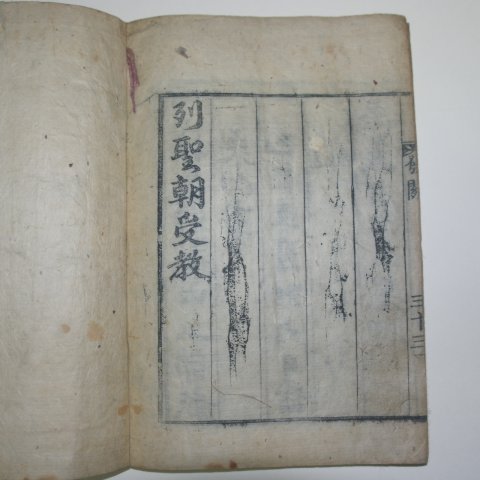 列聖朝受敎
三十三